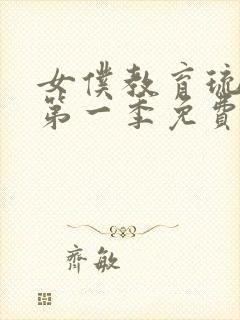 女僕教育琉
第一季免費
齊敏